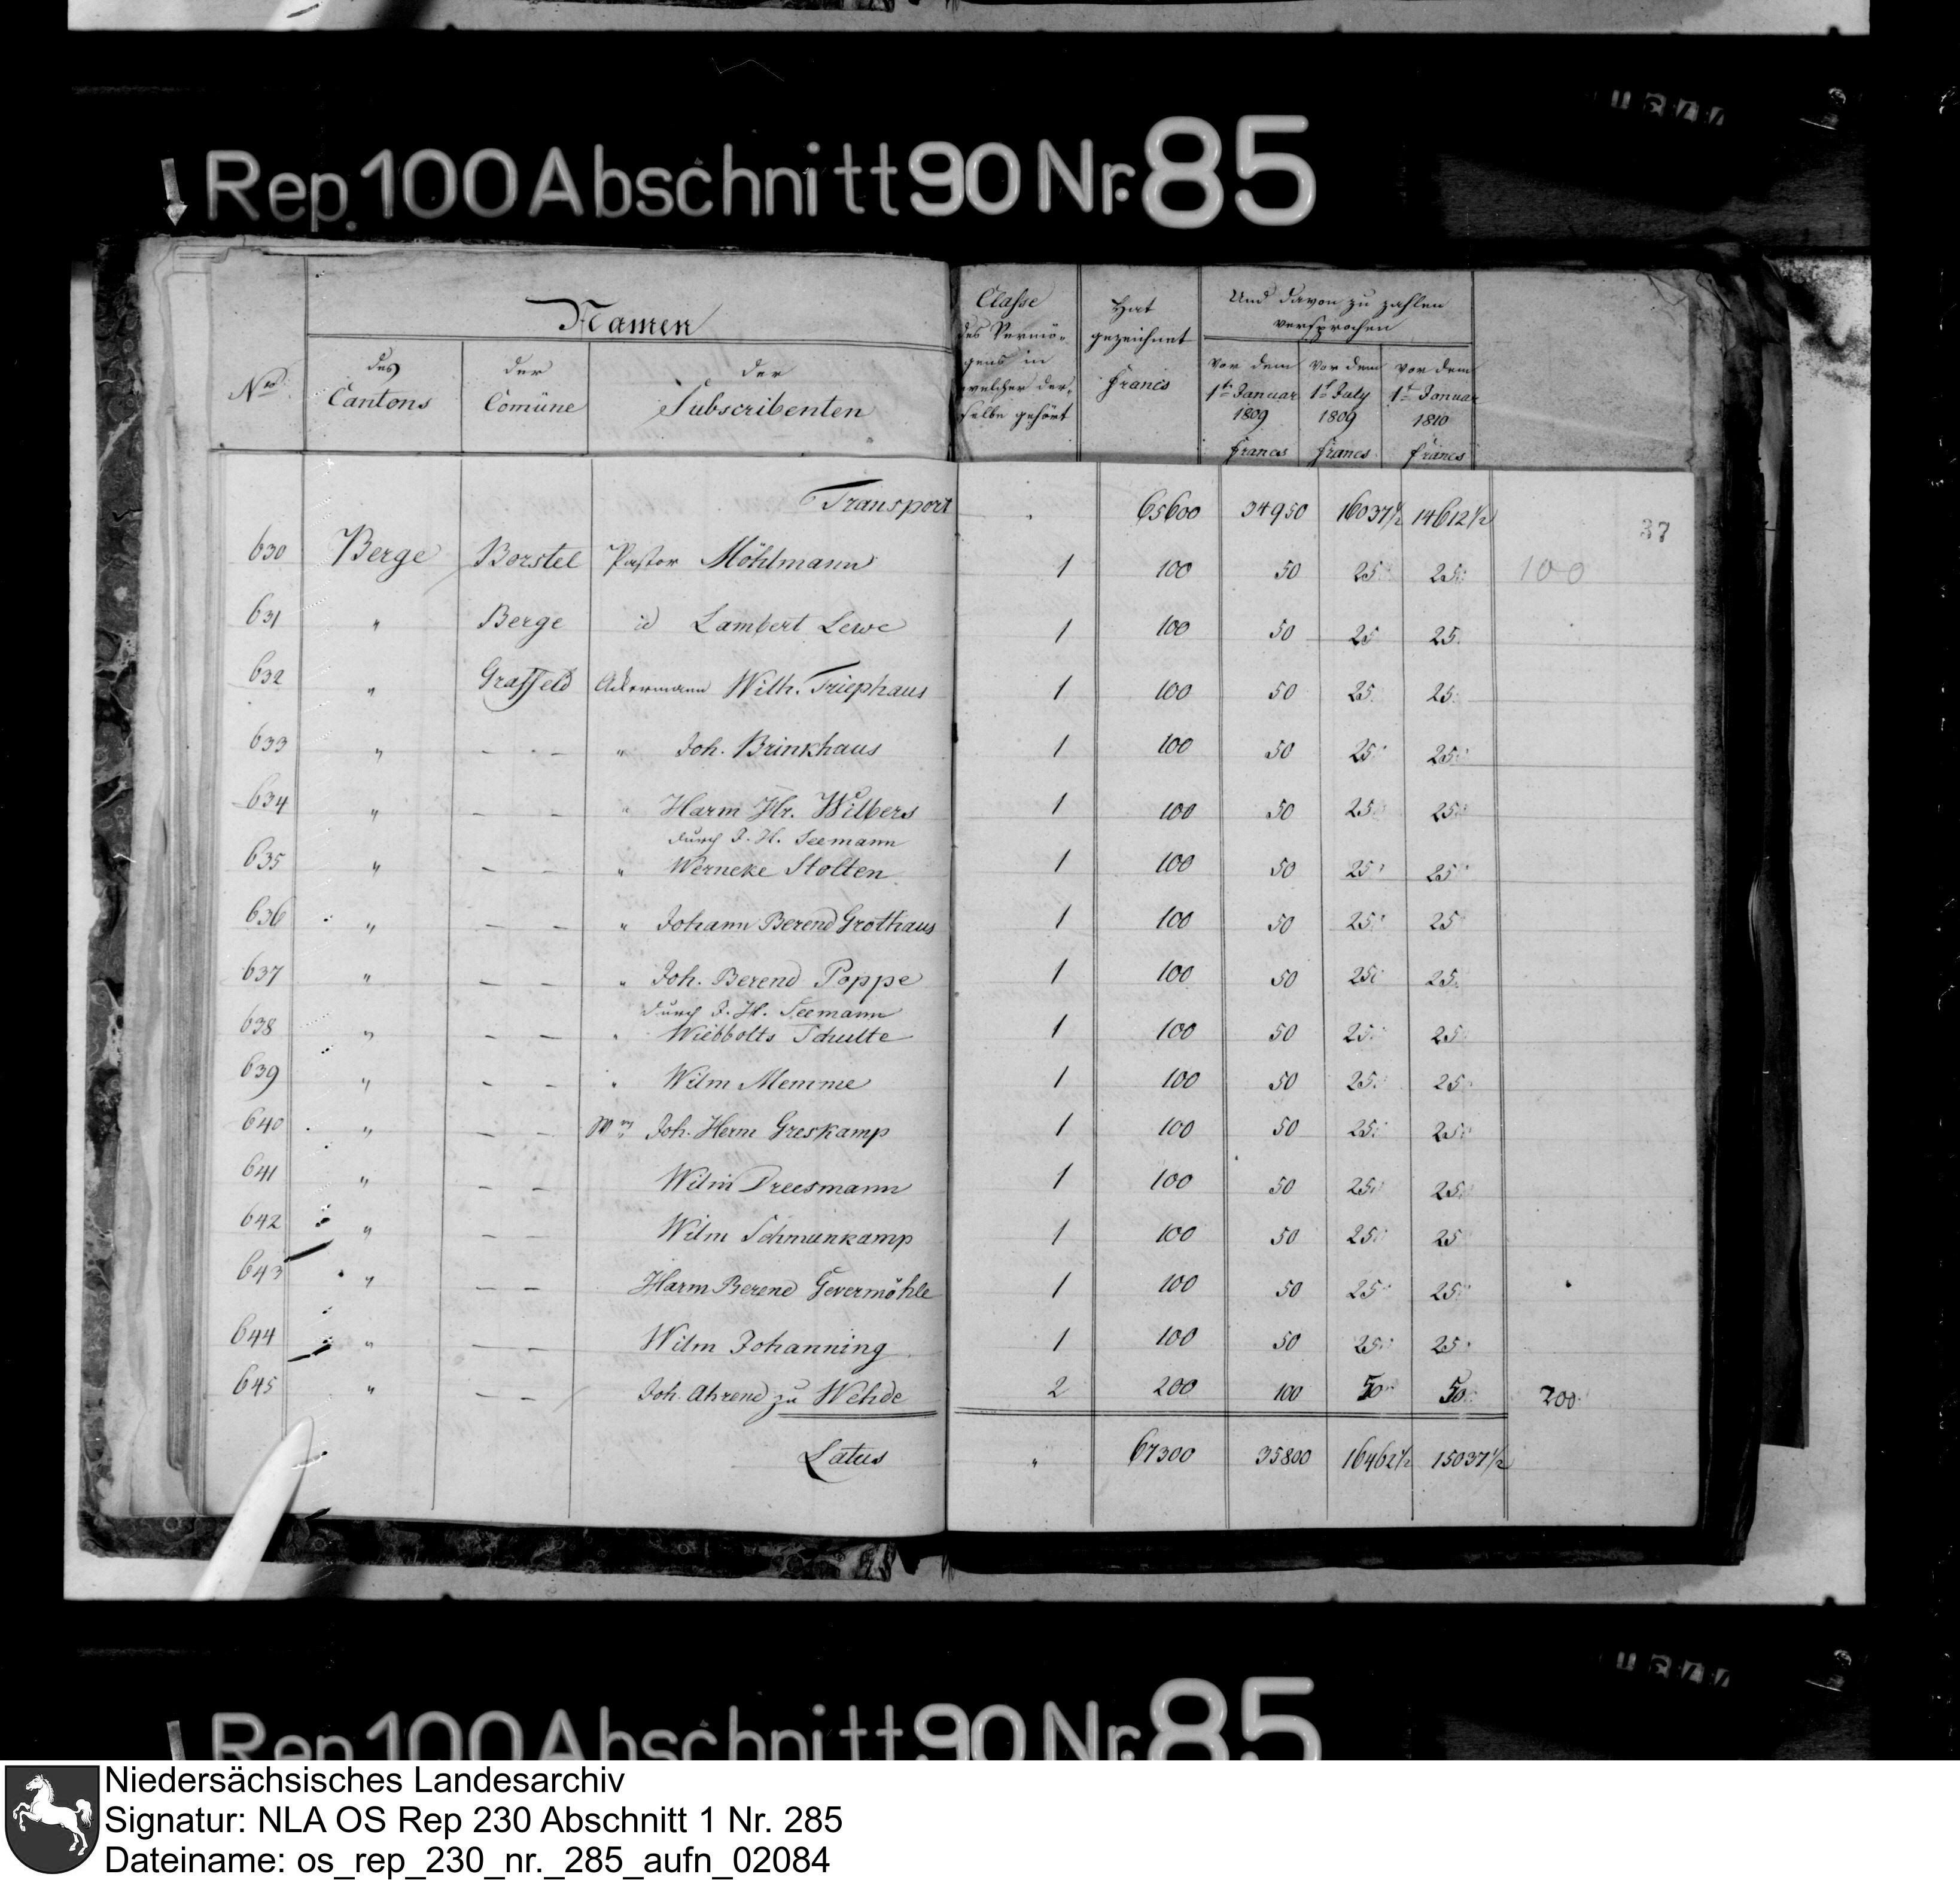 Rep. 100 Abschnitt 90 Nr. 85
Namen
Classe des Vermö-
gens in
welcher der-
selbe gehört
Hat
gezeichnet
Francs
Und davon zu zahlen
versprochen
No.
des
Cantons
der
Comüne
der
Subscribenten
vor dem
1ten Januar
1809
Francs
vor dem
1t July
1809
Francs
vor dem
1t Januar
1810
Francs
Transport 65600 34950 16037½ 14612½
37
630 Berge Borstel Pastor Möhlmann 1 100 50 25 25 100
631 " Berge id Lambert Lewe 1 100 50 25 25
632 " Grafeld Ackermann Wilh. Triephaus 1 100 50 25 25
633 " - - - " Joh. Brinkhaus 1 100 50 25 25
634 " - - " Harm Hr. Wilbers 1 100 50 25 25
durch J. H. Seemann
635 " - - " Werneke Stolten 1 100 50 25 25
636 " - - " Johann Berend Grothaus 1 100 50 25 25
637 " - - " Joh. Berend Poppe 1 100 50 25 25
durch J. H. Seemann
638 " - - " Wiebbolts Schulte 1 100 50 25 25
639 " - - " Wilm Memme 1 100 50 25 25
640 " - - Joh. Herm Greskamp 1 100 50 25 25
641 " - - Wilm Dreesmann 1 100 50 25 25
642 " - - Wilm Schmunkamp 1 100 50 25 25
643 " - - Harm Berend Gevermöhle 1 100 50 25 25
644 " - - Wilm Johanning 1 100 50 25 25
645 " - - Joh. Ahrend zu Wehde 2 200 100 50 50 200
Latus " 67300 35800 16462½ 15037½
Rep. 100 Abschnitt 90 Nr. 85
Niedersächsisches Landesarchiv
Signatur: NLA OS Rep 230 Abschnitt 1 Nr. 285
Dateiname: os_rep_230_nr._285_aufn_02084